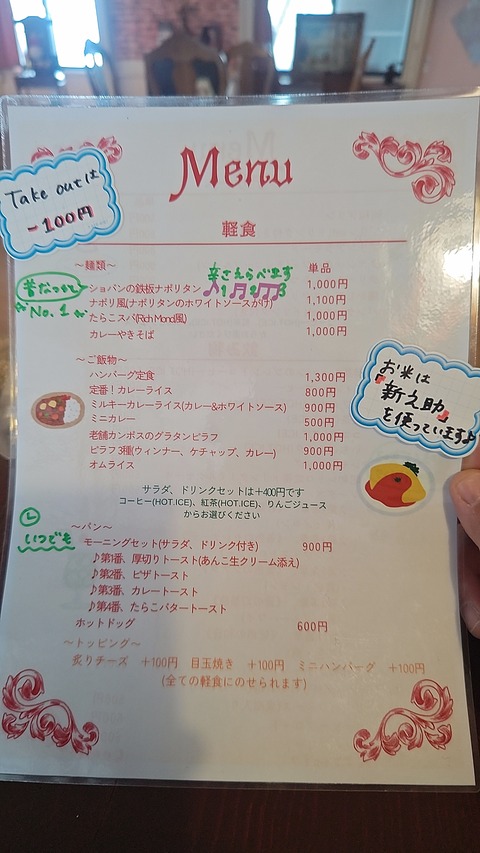 Menu
Take outは
-100円
軽食
～麺類～
単品
辛さえらべます
♪1 ♫2 ♬3
No.1
ショパンの鉄板ナポリタン 1,000円
ナポリ風(ナポリタンのホワイトソースがけ) 1,100円
たらこスパ(Rich Mond風) 1,000円
カレーやきそば 1,000円
～ご飯物～
ハンバーグ定食 1,300円
定番！カレーライス 800円
ミルキーカレーライス(カレー&ホワイトソース) 900円
ミニカレー 500円
老舗カンポスのグラタンピラフ 1,000円
ピラフ3種(ウィンナー、ケチャップ、カレー) 900円
オムライス 1,000円
お米は
『新之助』
を使っています♪
サラダ、ドリンクセットは＋400円です
コーヒー(HOT.ICE)、紅茶(HOT.ICE)、りんごジュース
からお選びください
いつでも
～パン～
モーニングセット(サラダ、ドリンク付き) 900円
♪第1番、厚切りトースト(あんこ生クリーム添え)
♪第2番、ピザトースト
♪第3番、カレートースト
♪第4番、たらこバタートースト
ホットドッグ 600円
～トッピング～
炙りチーズ ＋100円 目玉焼き ＋100円 ミニハンバーグ ＋100円
(全ての軽食にのせられます)